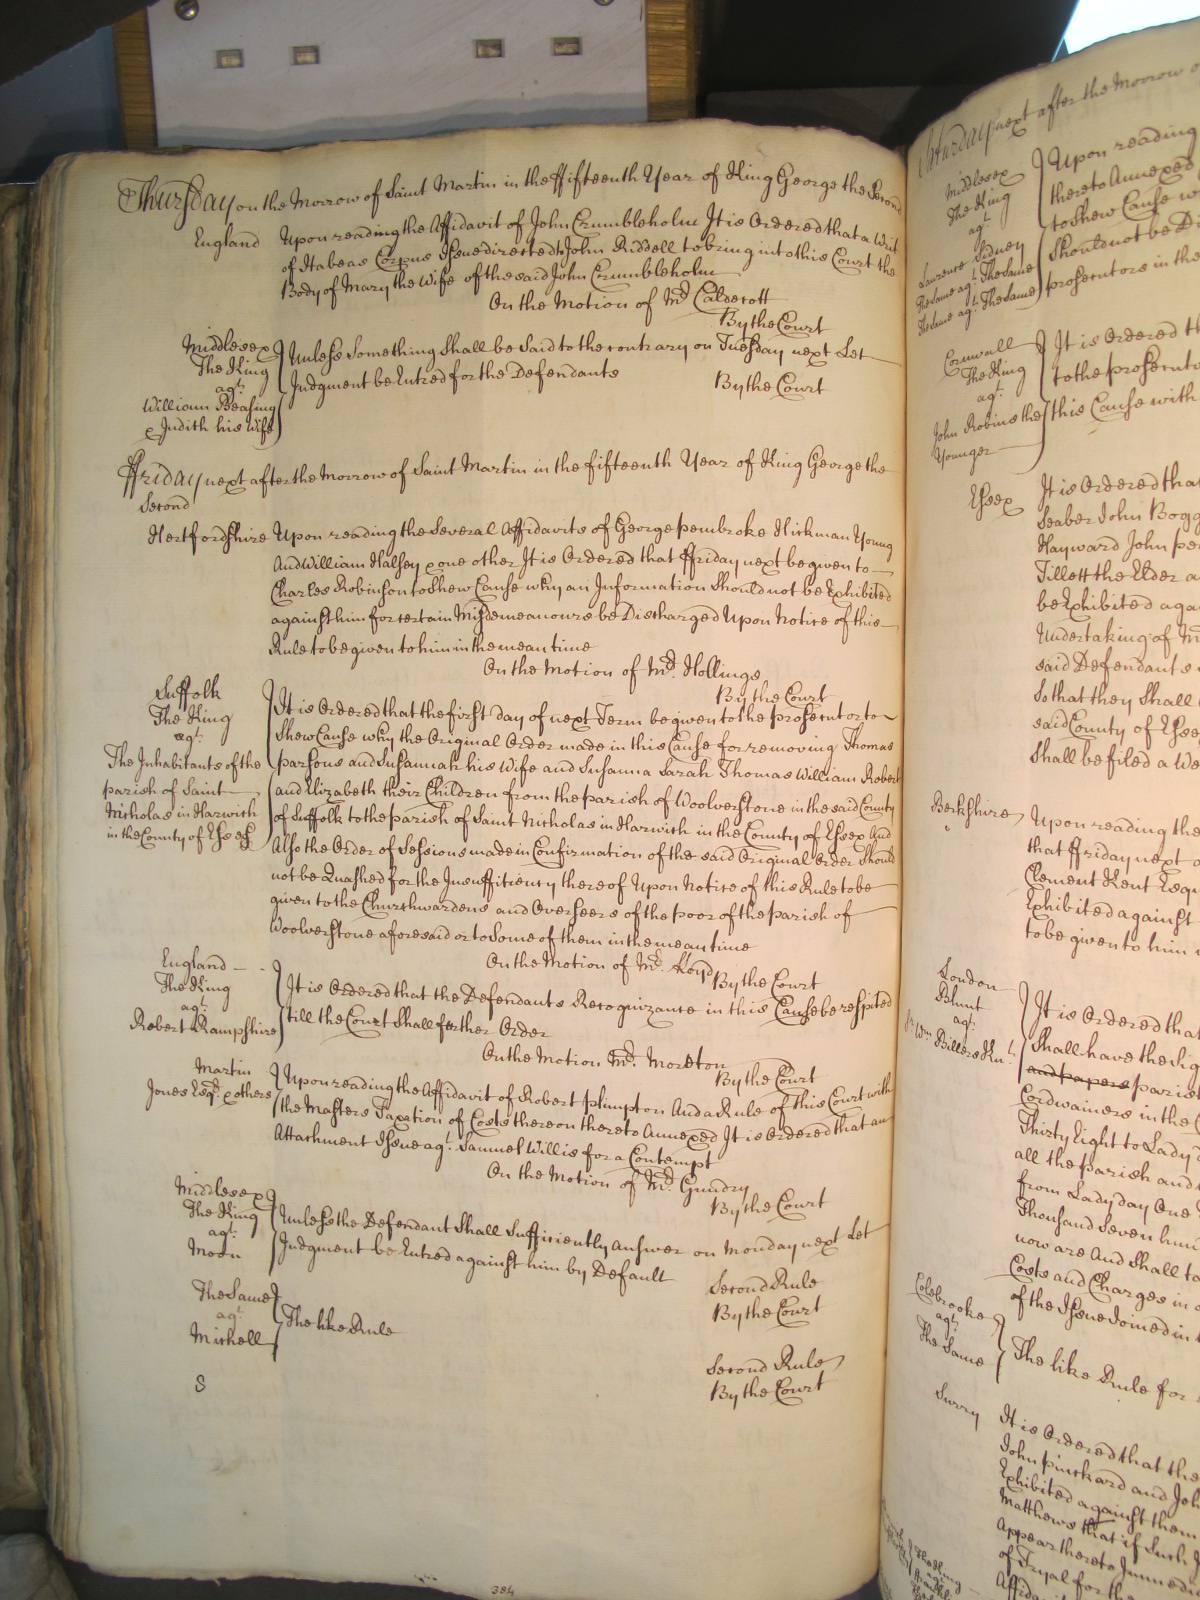 Thursday on the Morrow of Saint Martin in the ffifteenth Year of King George the Second
England Upon reading the Affidavit of John Crumbleholme It is Ordered that a Writ
of Habeas Corpus Issue directed to John Riddell to bring into this Court the
Body of Mary the Wife of the said John Crumbleholm
On the Motion of Mr. Caldecott
By the Court
Middlesex
The King
agt.
William Beasing
& Judith his Wife
Unless Something Shall be Said to the contrary on Tuesday next Let
Judgment be Entred for the Defendants
By the Court
ffriday next after the Morrow of Saint Martin in the fifteenth Year of King George the
Second
Hertfordshire Upon reading the Several Affidavits of George Pembroke Hickman Young
And William Halsey & one other It is Ordered that ffriday next be given to
Charles Robinson to Shew Cause why an Information Should not be Exhibited
against him for certain Misdemeanours be Discharged Upon Notice of this
Rule to be given to him in the mean time
On the Motion of Mr. Hollings
By the Court
Suffolk
The King
agt.
The Inhabitants of the
parish of Saint
Nicholas in Harwich
in the County of Essex
It is Ordered that the first day of next Term be given to the prosecutor to
Shew Cause why the Original Order made in this Cause for removing Thomas
parsons and Susannah his Wife and Susanna Sarah Thomas William Robert
and Elizabeth their Children from the parish of Woolverstone in the said County
of Suffolk to the parish of Saint Nicholas in Harwich in the County of Essex And
Also the Order of Sessions made in Confirmation of the said Original Order Should
not be Quashed for the Insufficiency thereof Upon Notice of this Rule to be
given to the Churchwardens and Overseers of the poor of the parish of
Woolverstone aforesaid or to Some of them in the mean time
On the Motion of Mr. Lloyd
By the Court
England
The King
agt.
Robert Rampshire
It is Ordered that the Defendants Recognizance in this Cause be respited
till the Court Shall further Order
On the Motion Mr. Moreton
By the Court
Martin
Jones Esqr. & others
Upon reading the Affidavit of Robert Plimpton And a Rule of this Court with
the Masters Taxation of Costs thereon thereto Annexed It is Ordered that an
Attachment Issue agt. Samuel Willis for a Contempt
On the Motion of Mr. Gundry
By the Court
Middlesex
The King
agt.
Moon
Unless the Defendant Shall Sufficiently answer on Monday next Let
Judgment be Entred against him by Default
Second Rule
By the Court
The Same
agt.
Michell
The like Rule
Second Rule
By the Court
S
384
Saturday next after the Morrow
Middlesex
The King
agt.
Laurence Sidney
The Same agt. The Same
The Same agt. The Same
Upon reading
thereto Annexed
to Shew Cause
Should not be
prosecutors in the
Cornwall
The King
agt.
John Robins the
Younger
It is Ordered
to the prosecutor
this Cause with
Essex It is Ordered that
Seaber John
Hayward John
Tillett the Elder
be Exhibited
Undertaking of
said Defendants
So that they Shall
said County of
Shall be filed a
Berkshire Upon reading the
that ffriday next
Clement Kent
Exhibited against
to be given to him
London
Blunt
agt.
Sr. Wm. Billers Knt.
It is Ordered that
Shall have the
and papers parish
Cordwainers in the
Thirty Eight to Lady
all the parish and
from Lady day One
Thousand Seven
now are And Shall
Costs and Charges in
of the Issue Joined in
Colebrooke
agt.
The Same
The like Rule for
Surry It is Ordered that the
John pinckard and
Exhibited against them
Matthews that if Such
Appear thereto
of Tryal for the